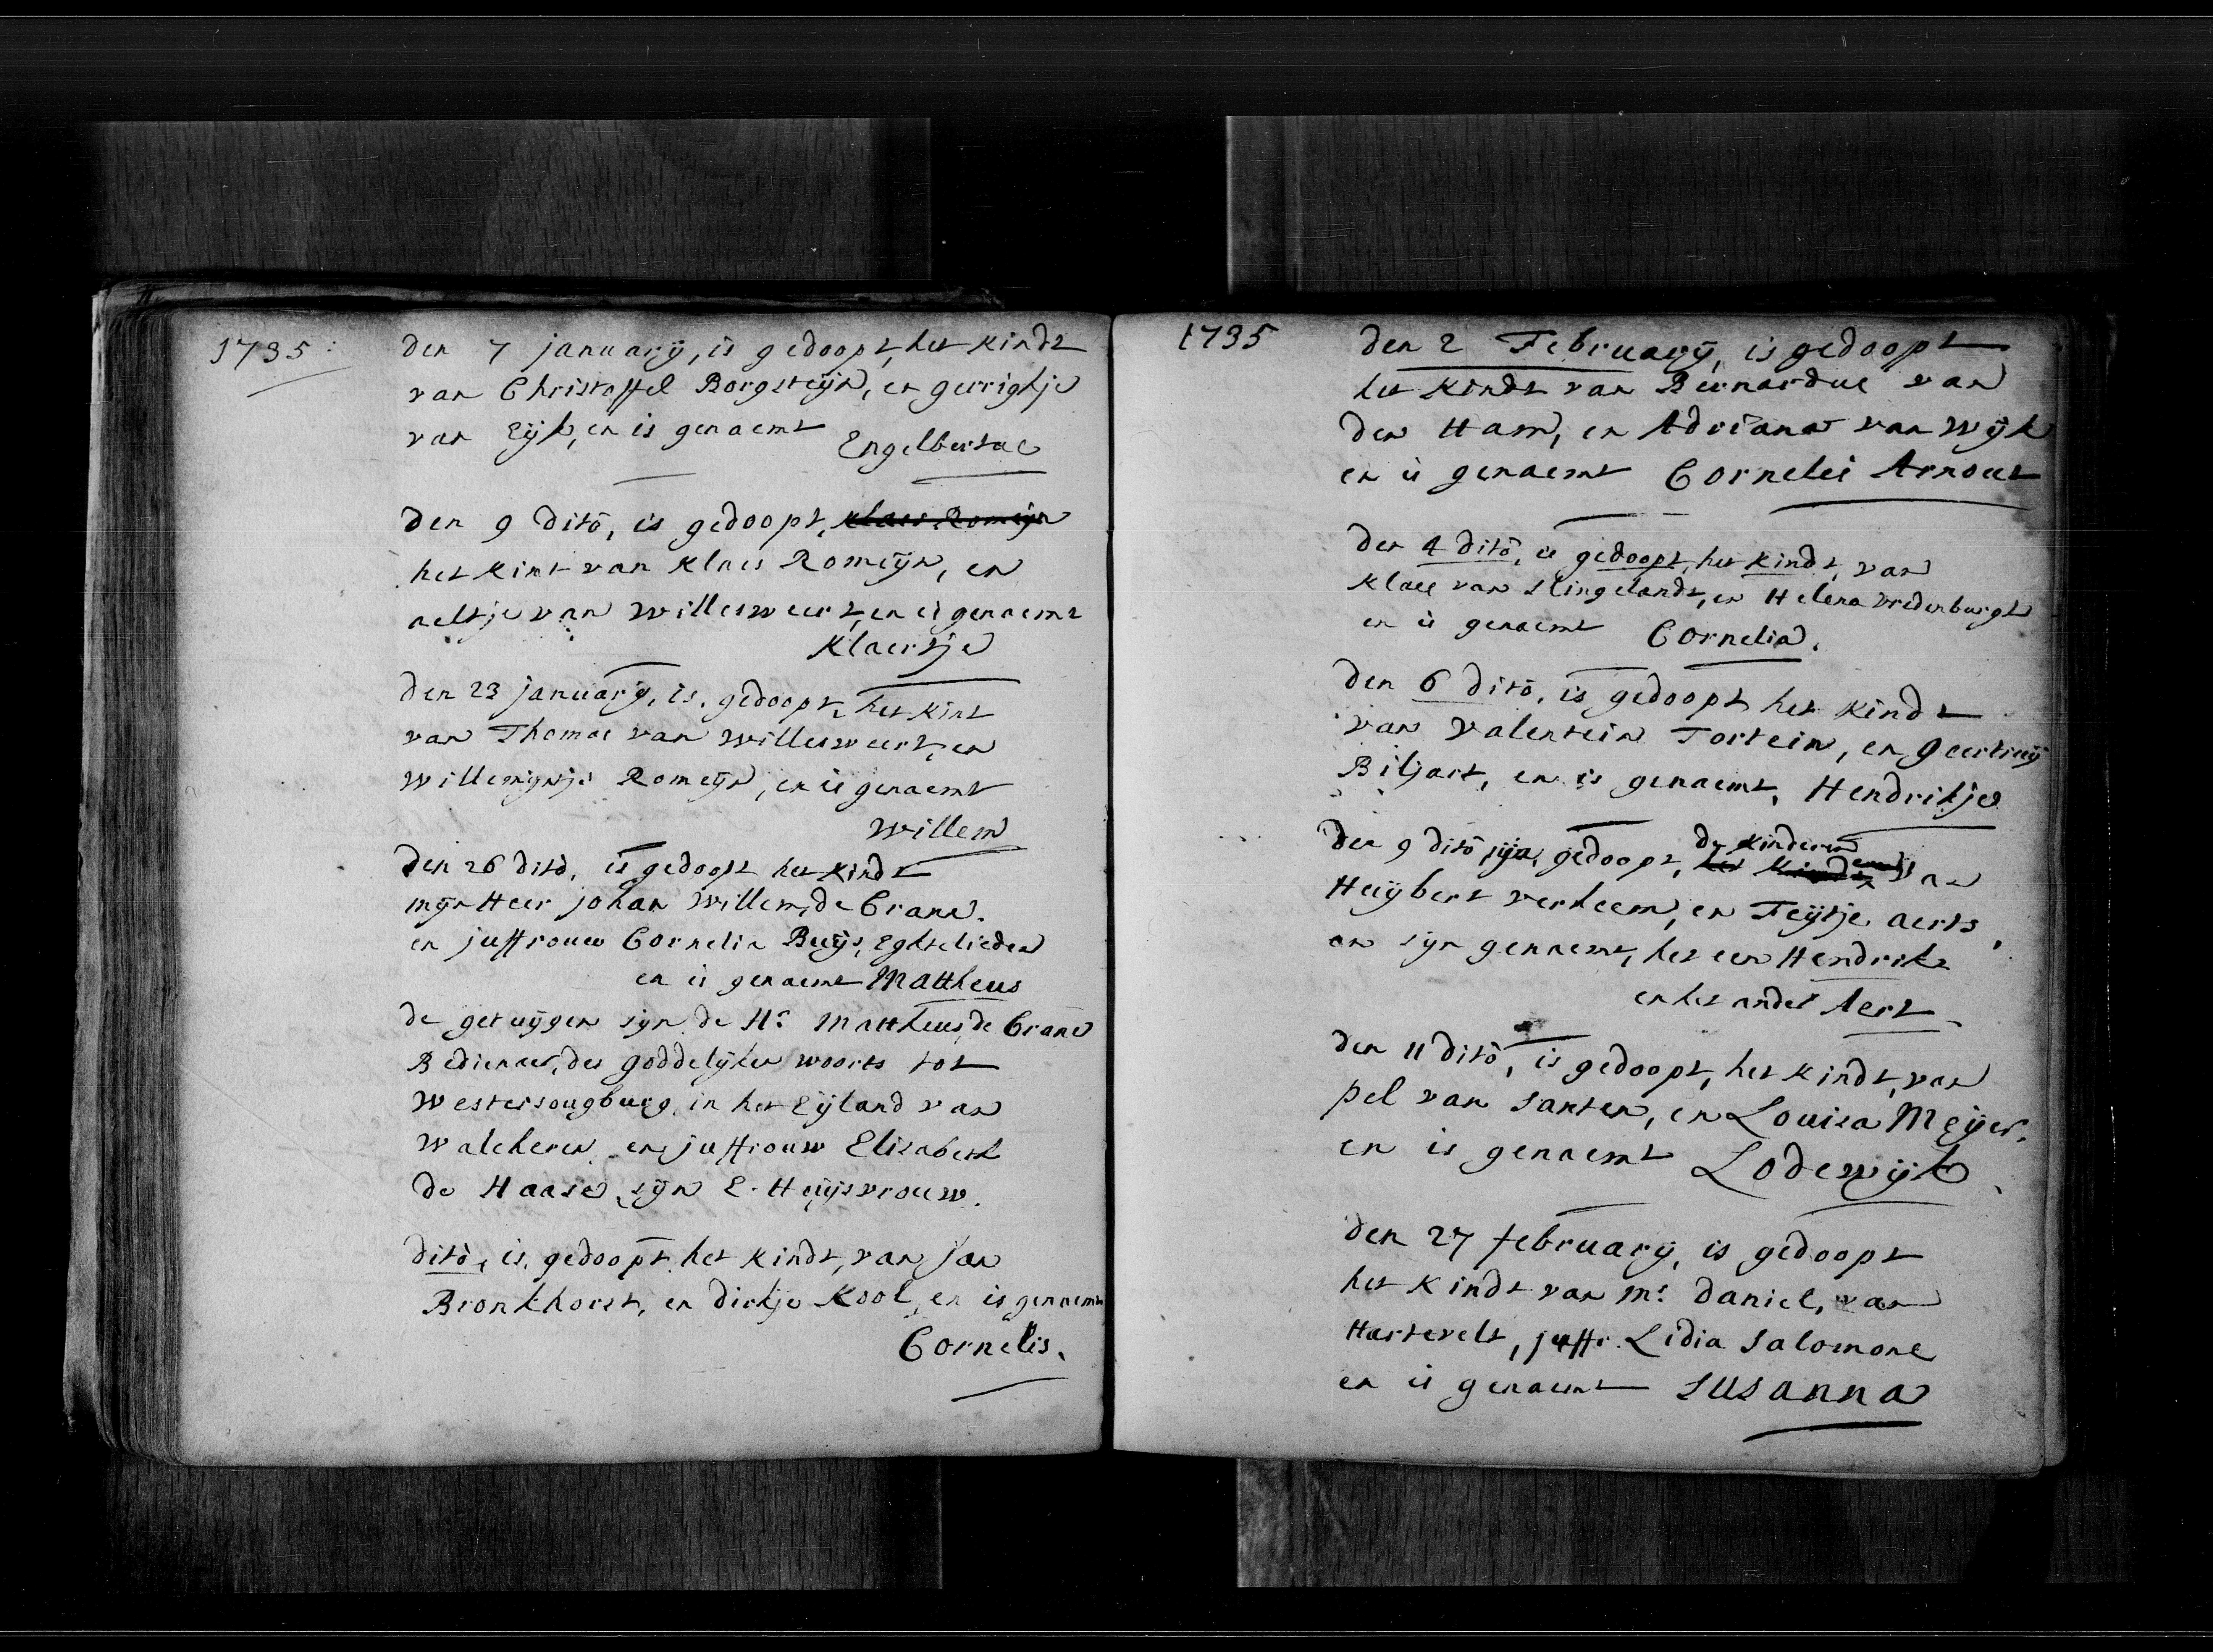 1735:
den 7 january, is gedoopt, het kindt
van Christoffel Borgsteyn, en gerrightje
van Eyk, en is genaemt
Engelbertus
den 9 dito, is gedoopt, klaes Romeyn
het kint van Klaes Romeyn, en
aeltje van Willesweert, en is genaemt
Klaertje
den 23 january, is gedoopt, het kint
van Thomas van Willesweert, en
Willemyntje Romeyn, en is genaemt
Willem
den 26 dito, is gedoopt het kindt
myn Heer johan Willem, de Crane.
en juffrouw Cornelia Buys, Eghtelieden
en is genaemt Mattheus
de getuygen syn de Hr. Mattheus, de Crane
Bedienaer, des goddelyken woorts tot
Westersougburg, in het Eyland van
Walcheren, en juffrouw Elisabeth
de Haase, syn E. Huysvrouw.
dito, is, gedoopt, het kindt, van Jan
Bronkhorst, en dirkje Kool, en is genaemt
Cornelis.
1735
den 2 February, is gedoopt
het kindt van Bernardus van
den Ham, en Adriana van Wyk
en is genaemt Cornelis Arnout
den 4 dito, is gedoopt, het kindt, van
Klaes van Slingelandt, en Helena Vredenburgh
en is genaemt Cornelia.
den 6 dito, is gedoopt het kindt
van Valentein Fortein, en geertruy
Biljart, en is genaemt, Hendrikje
de kinderen
den 9 dito syn, gedoopt, het van
Huybert verheem, en Feytje aerts,
en syn genaemt, het een Hendrik
en het ander Aert
den 11 dito, is gedoopt, het kindt, van
pel van Santen, en Louisa Meyer,
en is genaemt Lodewyk
den 27 february, is gedoopt
het kindt van Mr. daniel, van
Hartevelt, juffr. Lidia Salomons
en is genaemt Susanna